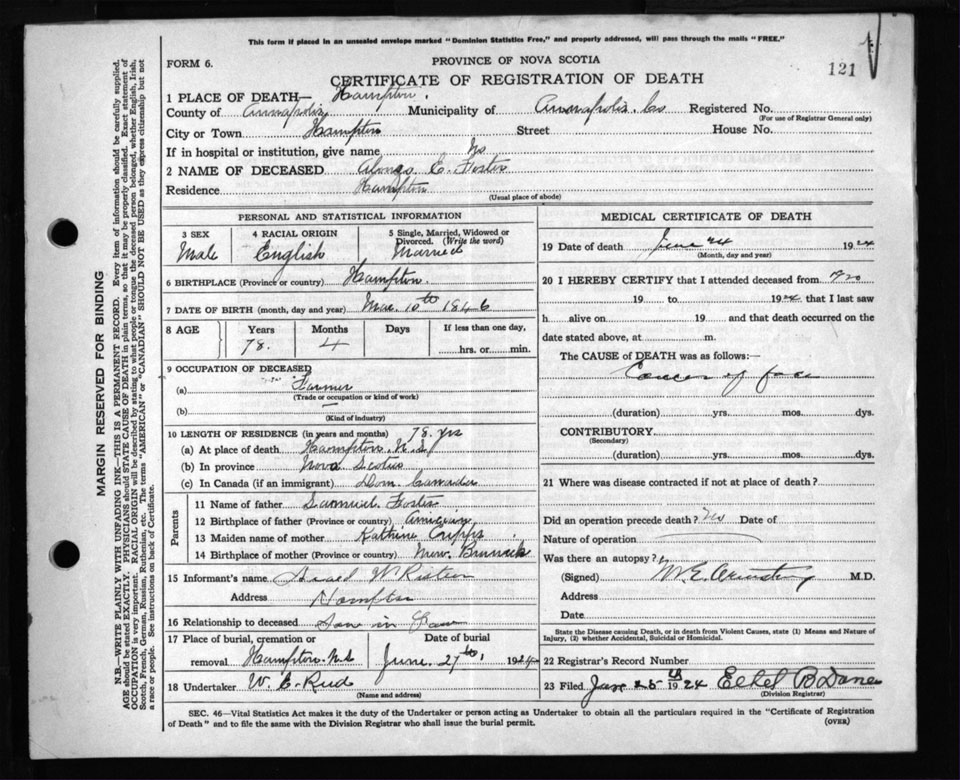 This form if placed in an unsealed envelope marked "Dominion Statistics Free," and properly addressed, will pass through the mails "FREE."
FORM 6.
PROVINCE OF NOVA SCOTIA
121
CERTIFICATE OF REGISTRATION OF DEATH
1 PLACE OF DEATH— Hampton.
County of Annapolis Municipality of Annapolis Co Registered No.
(For use of Registrar General only)
City or Town Hampton Street House No.
If in hospital or institution, give name No
2 NAME OF DECEASED Alonzo E. Foster
Residence Hampton
(Usual place of abode)
PERSONAL AND STATISTICAL INFORMATION
3 SEX 4 RACIAL ORIGIN 5 Single, Married, Widowed or Divorced. (Write the word)
Male English Married
6 BIRTHPLACE (Province or country) Hampton.
7 DATE OF BIRTH (month, day and year) Mar. 10th 1846
8 AGE Years Months Days If less than one day,
78. 4 hrs. or min.
9 OCCUPATION OF DECEASED
(a) Farmer
(Trade or occupation or kind of work)
(b)
(Kind of industry)
10 LENGTH OF RESIDENCE (in years and months) 78. yrs
(a) At place of death Hampton. N.S.
(b) In province Nova Scotia
(c) In Canada (if an immigrant) Dom. Canada
Parents
11 Name of father Samuel Foster
12 Birthplace of father (Province or country)
13 Maiden name of mother Cripps
14 Birthplace of mother (Province or country) New. Brunswick
15 Informant's name
Address Hampton
16 Relationship to deceased Son in Law
17 Place of burial, cremation or removal Hampton. N.S. Date of burial June. 27th, 1924
18 Undertaker W. E. Reed
(Name and address)
MEDICAL CERTIFICATE OF DEATH
19 Date of death June 24 1924
(Month, day and year)
20 I HEREBY CERTIFY that I attended deceased from 1920
19 to 1924 that I last saw
h alive on 19 and that death occurred on the
date stated above, at m.
The CAUSE OF DEATH was as follows:—
Cancer of face
(duration) yrs. mos. dys.
CONTRIBUTORY
(Secondary)
(duration) yrs. mos. dys.
21 Where was disease contracted if not at place of death?
Did an operation precede death? No Date of
Nature of operation
Was there an autopsy?
(Signed) M.D.
Address
Date
State the Disease causing Death, or in death from Violent Causes, state (1) Means and Nature of Injury, (2) whether Accidental, Suicidal or Homicidal.
22 Registrar's Record Number
23 Filed 25th 1924 Ethel B
(Division Registrar)
SEC. 46—Vital Statistics Act makes it the duty of the Undertaker or person acting as Undertaker to obtain all the particulars required in the "Certificate of Registration
of Death" and to file the same with the Division Registrar who shall issue the burial permit. (OVER)
MARGIN RESERVED FOR BINDING
N.B.—WRITE PLAINLY WITH UNFADING INK—THIS IS A PERMANENT RECORD. Every item of information should be carefully supplied.
AGE should be stated EXACTLY. PHYSICIANS should STATE CAUSE OF DEATH in plain terms, so that it may be properly classified. Exact statement of
OCCUPATION is very important. RACIAL ORIGIN will be described by stating to what people or tongue the deceased person belonged, whether English, Irish,
Scotch, French, German, Russian, Ruthenian, etc. The terms "AMERICAN" or "CANADIAN" SHOULD NOT BE USED as they express citizenship but not
a race or people. See instructions on back of Certificate.